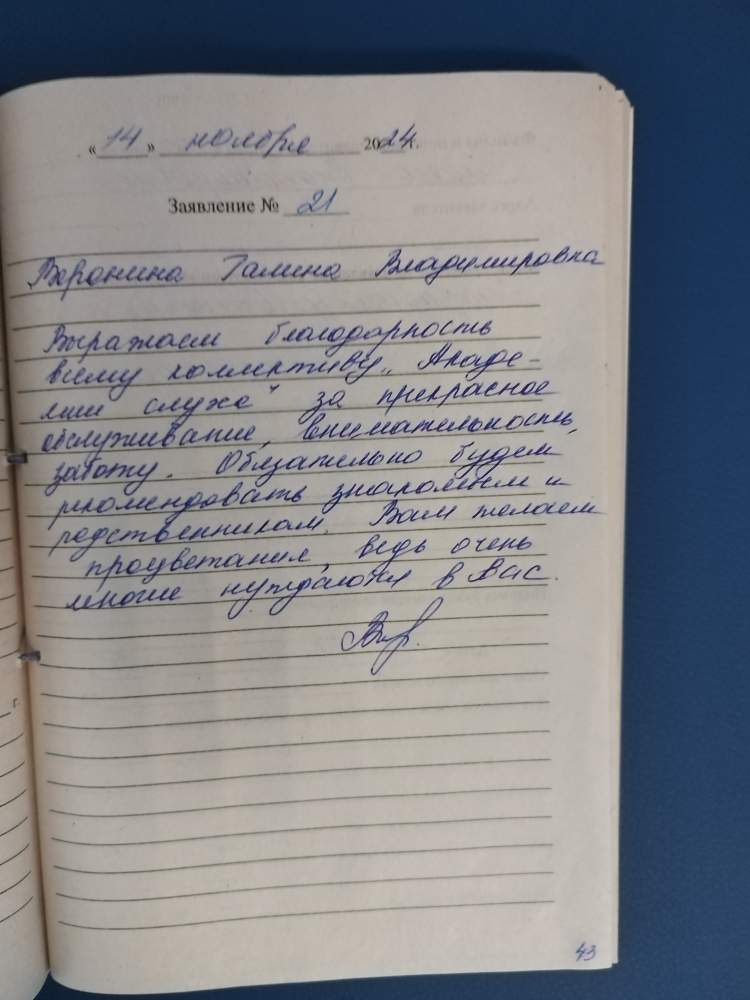 «14» ноября 2024г.
Заявление № 21
Воронина Галина Владимировна
Выражаем благодарность
всему коллективу „Акаде-
мии слуха" за прекрасное
обслуживание, внимательность,
заботу. Обязательно будем
рекомендовать знакомым и
родственникам. Вам желаем
процветания, ведь очень
многие нуждаются в Вас.
г.
43